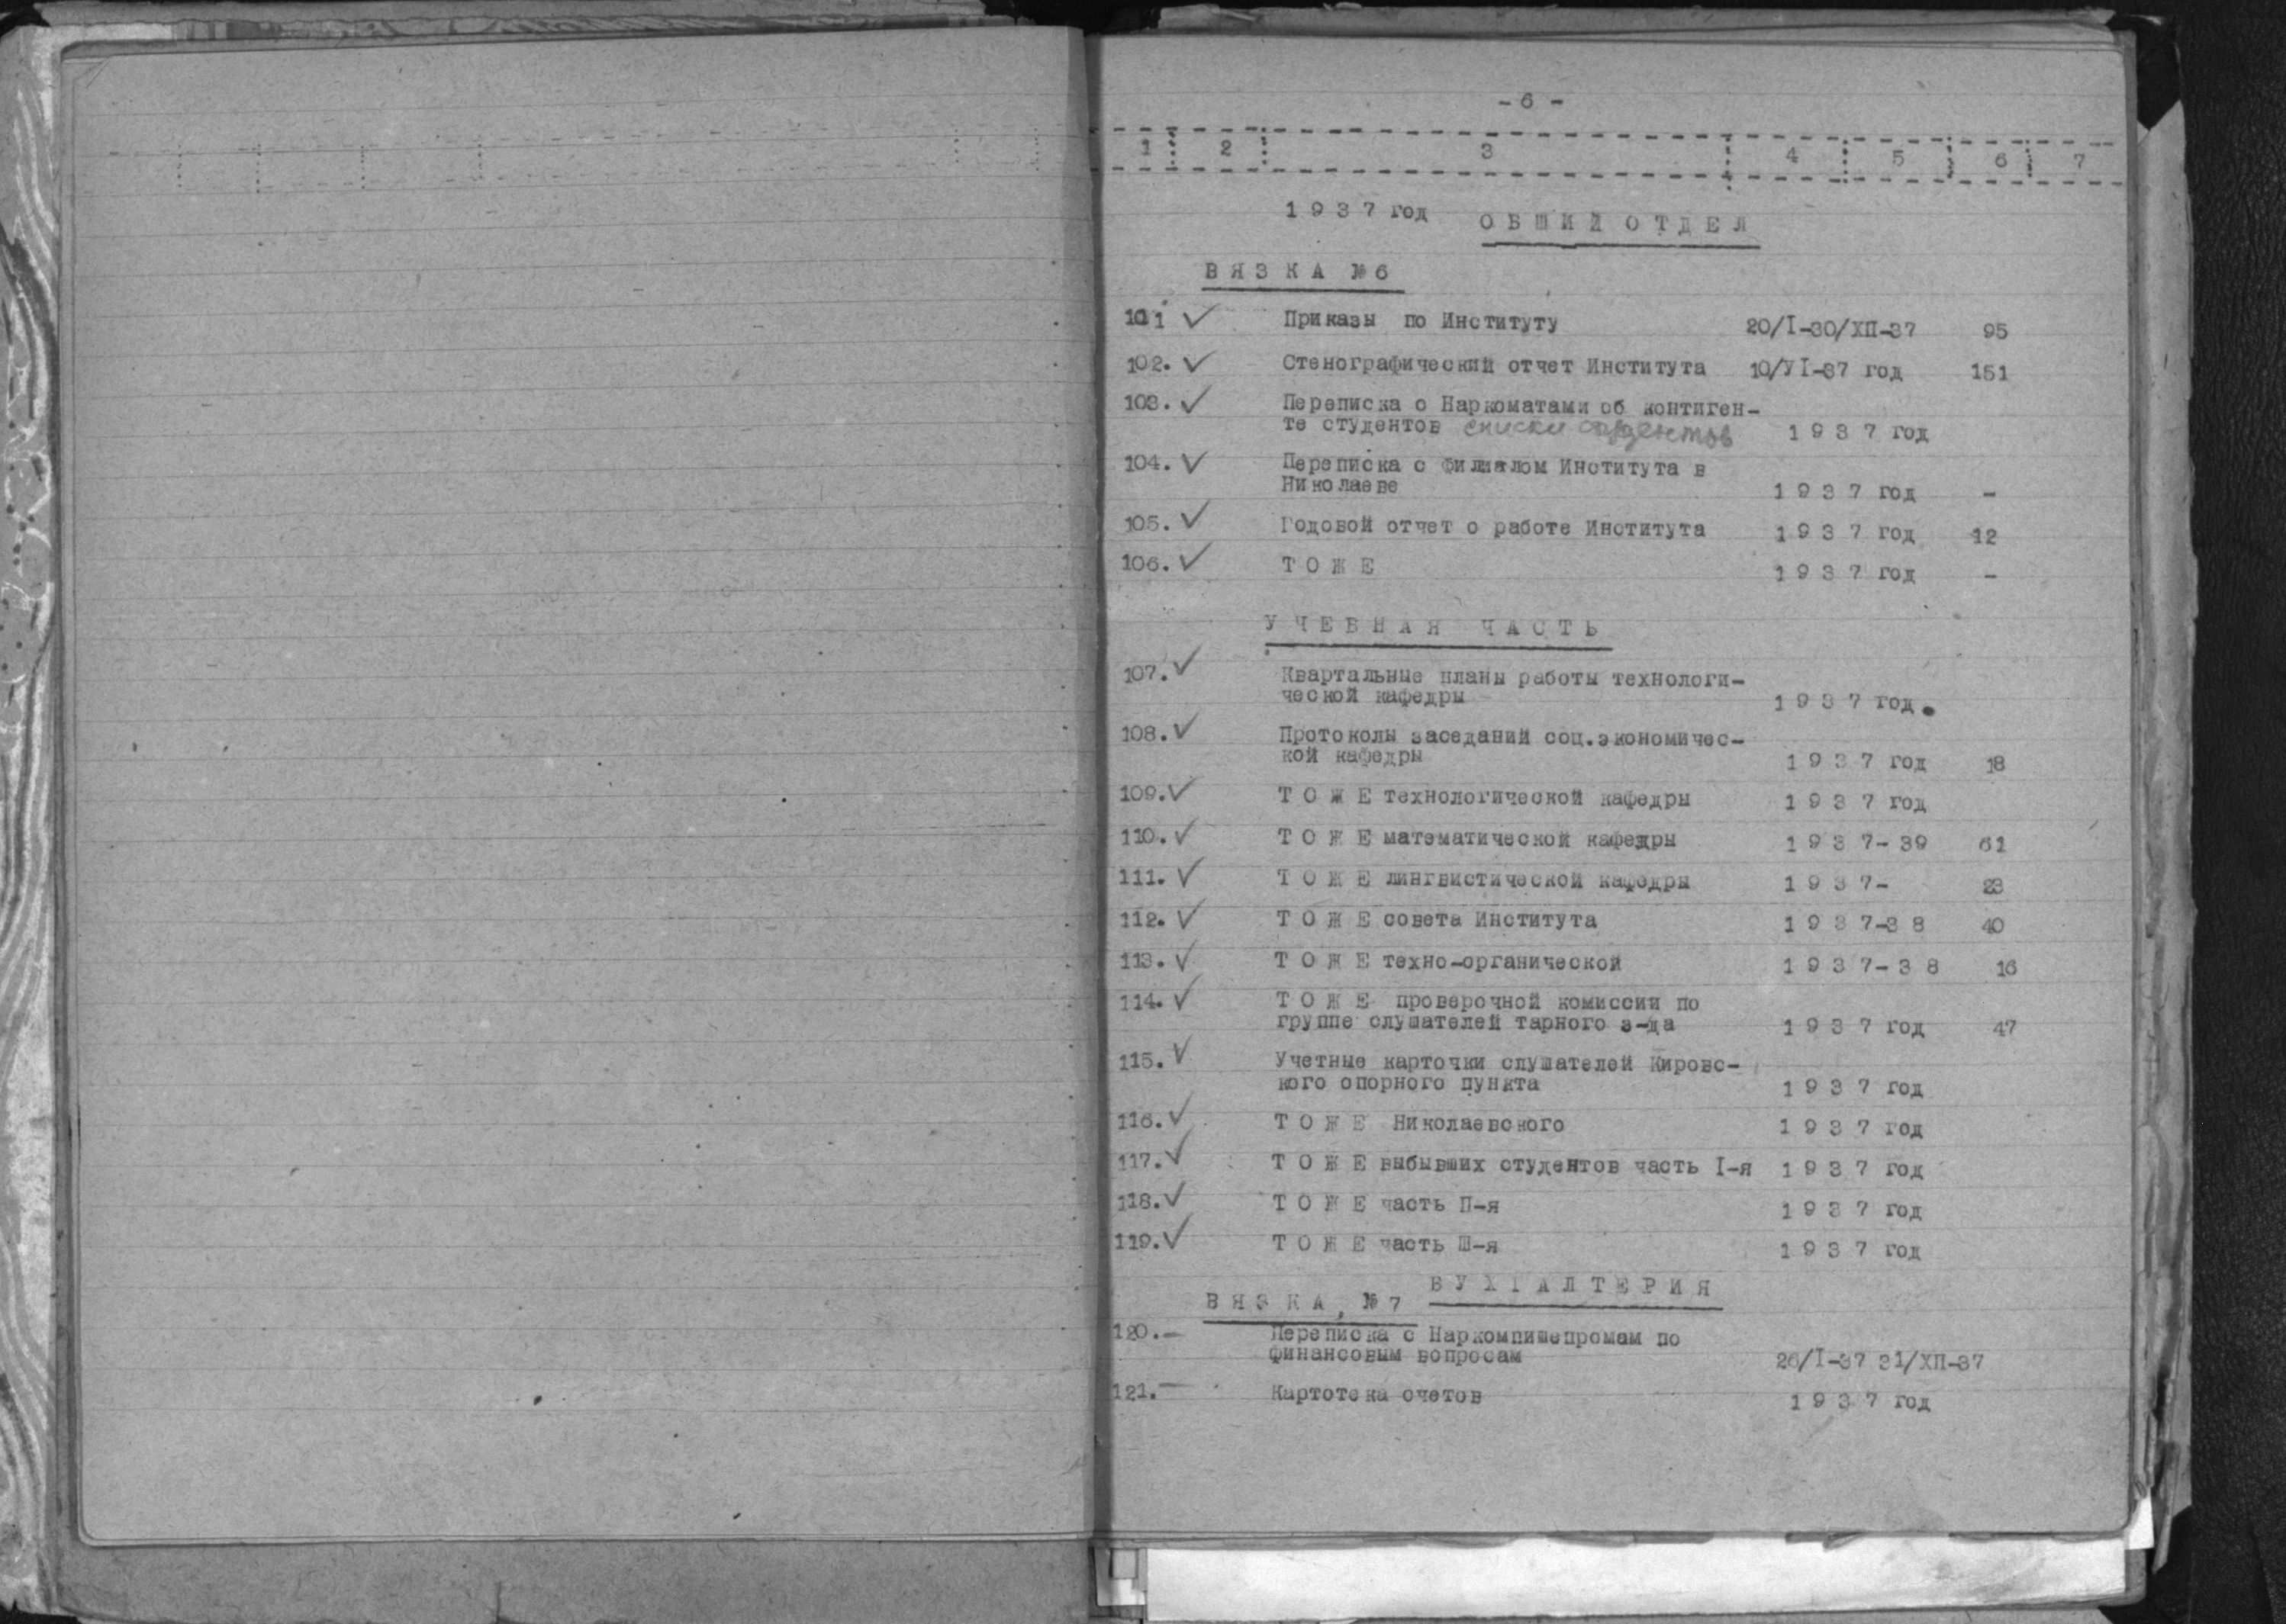 - 6 -
1 2 3 4 5 6 7
1 9 3 7 год
О Б Щ И Й О Т Д Е Л
В Я З К А № 6
101 ✓ Приказы по Институту 20/I-30/ХП-37 95
102. ✓ Стенографический отчет Института 10/УI-37 год 151
103. ✓ Переписка с Наркоматами об контиген-
те студентов списки студентов 1 9 3 7 год
104. ✓ Переписка с филиалом Института в
Николаеве 1 9 3 7 год -
105. ✓ Годовой отчет о работе Института 1 9 3 7 год 12
106. ✓ Т О Ж Е 1 9 3 7 год -
У Ч Е Б Н А Я Ч А С Т Ь
107. ✓ Квартальные планы работы технологи-
ческой кафедры 1 9 3 7 год.
108. ✓ Протоколы заседаний соц.экономичес-
кой кафедры 1 9 3 7 год 18
109. ✓ Т О Ж Е технологической кафедры 1 9 3 7 год
110. ✓ Т О Ж Е математической кафедры 1 9 3 7- 39 61
111. ✓ Т О Ж Е лингвистической кафедры 1 9 3 7- 23
112. ✓ Т О Ж Е совета Института 1 9 3 7-3 8 40
113. ✓ Т О Ж Е техно-органической 1 9 3 7- 3 8 16
114. ✓ Т О Ж Е проверочной комиссии по
группе слушателей тарного з-да 1 9 3 7 год 47
115. ✓ Учетные карточки слушателей Кировс-
кого опорного пункта 1 9 3 7 год
116. ✓ Т О Ж Е Николаевского 1 9 3 7 год
117. ✓ Т О Ж Е выбывших студентов часть I-я 1 9 3 7 год
118. ✓ Т О Ж Е часть П-я 1 9 3 7 год
119. ✓ Т О Ж Е часть Ш-я 1 9 3 7 год
Б У Х Г А Л Т Е Р И Я
В Я З К А № 7
120. — Переписка с Наркомпищепромам по
финансовым вопросам 26/I-37 31/ХП-37
121. — Картотека счетов 1 9 3 7 год